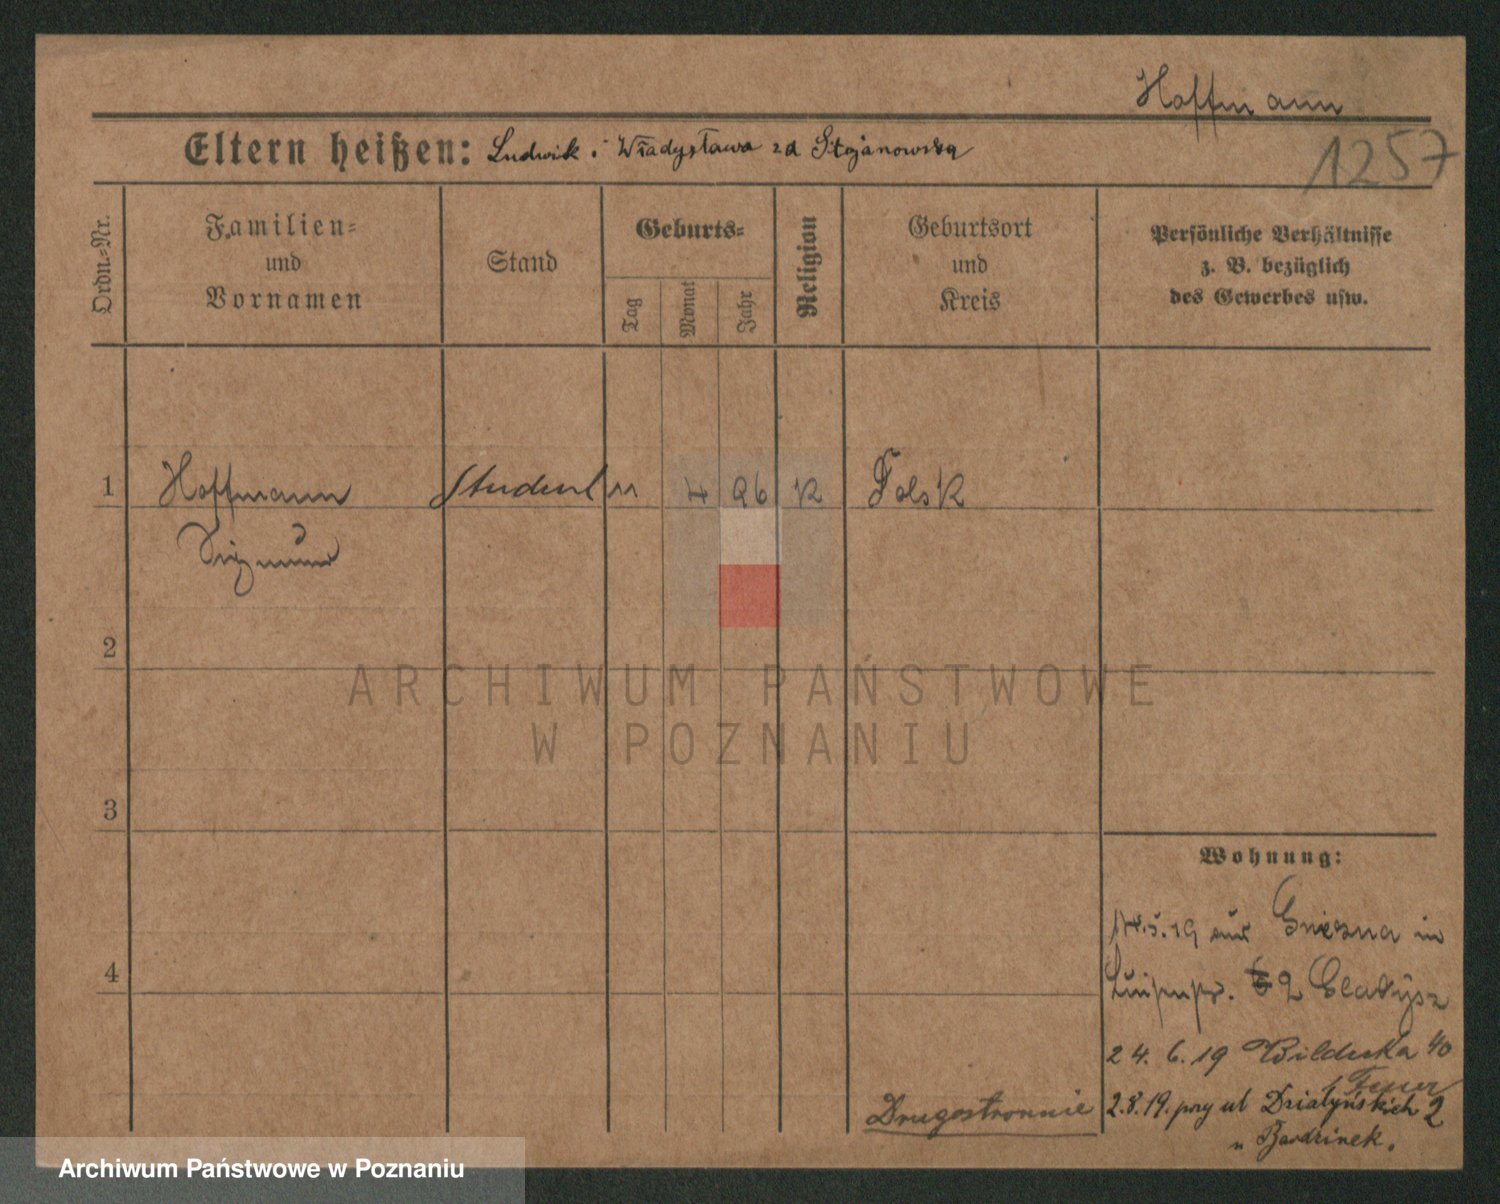 Hoffmann
1257
Eltern heißen: Ludwik i Władysława zd Stojanowska
Ordn.-Nr.
Familien-
und
Vornamen
Stand
Geburts-
Tag
Monat
Jahr
Religion
Geburtsort
und
Kreis
Persönliche Verhältnisse
z. B. bezüglich
des Gewerbes usw.
1 Hoffmann Student 11 4 96 K Dolsk
Sigmund
2
ARCHIWUM PAŃSTWOWE
W POZNANIU
3
Wohnung:
14.5.19 aus Gniezna in
Luisenstr. 2 Gladysz
4
24. 6. 19 Bilderka 40
2.8.19. przy ul Działyńskich 2
u Bardzinek.
Drugostronnie
Archiwum Państwowe w Poznaniu